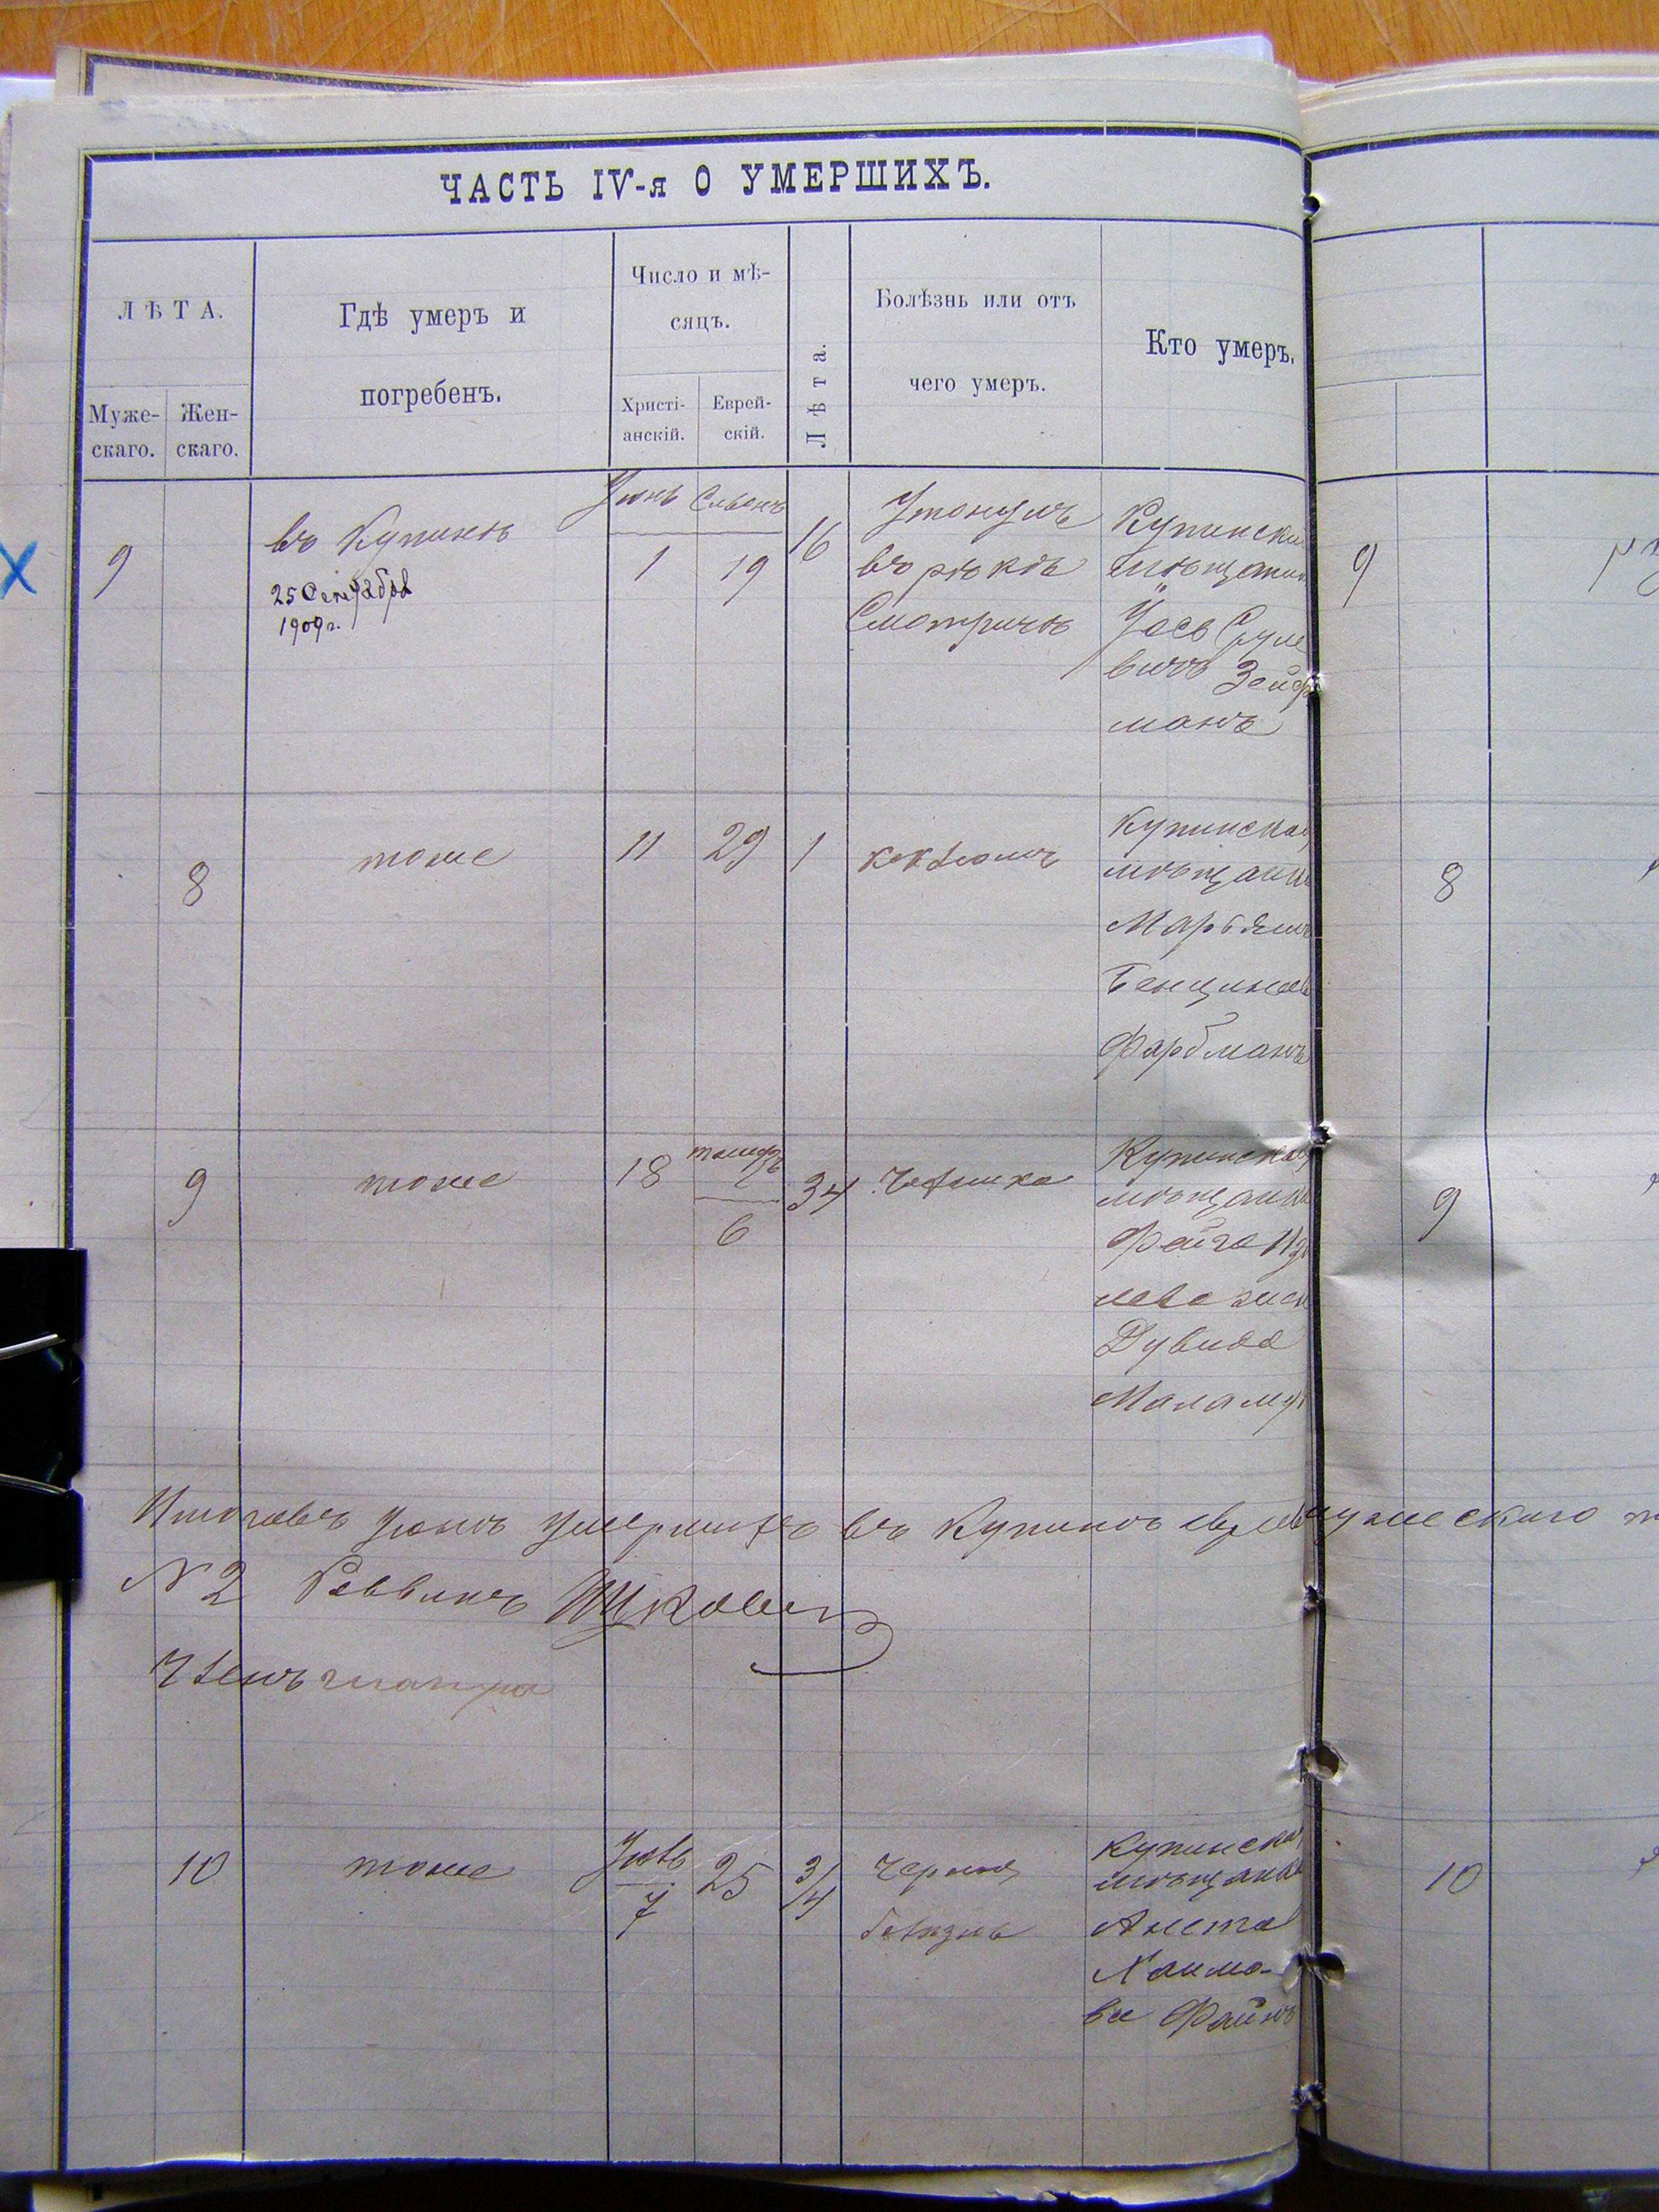 ЧАСТЬ IV-я О УМЕРШИХЪ.
ЛѢТА.
Муже-
скаго.
Жен-
скаго.
Гдѣ умеръ и
погребенъ.
Число и мѣ-
сяцъ.
Христі-
анскій.
Еврей-
скій.
Лѣта.
Болѣзнь или отъ
чего умеръ.
Кто умеръ.
9
въ Купинѣ
25 Сентября
1909 г.
Іюнь
1
Сивонъ
19
16
Утонулъ
въ рѣкѣ
Смотричѣ
Купински
мѣщанин
Іось Сруле
вичъ Зейф
манъ
9
8
тоже
11
29
1
коклюшъ
Купинская
мѣщанк
Марьям
Бенционов
Фарбманъ
8
9
тоже
18
6
34
Чахотка
Купинская
мѣщанк
Фейга
лева жен
Дувида
Маламу
9
Итого въ Іюнѣ умершихъ въ Купинѣ мужескаго
№ 2 Раввинъ
Членъ
10
тоже
Іюль
7
25
3/4
Черная
болѣзнь
Купинска
мѣщанка
Анста
Хаимо-
ва Файнъ
10